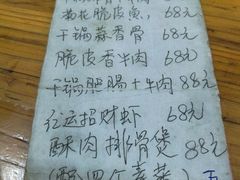 黄花脆皮臭, 68元
干锅蒜香骨 68元
脆皮香牛肉 68元
干锅肥肠+牛肉 88元
红运招财虾 68元
酥肉排骨煲 88元